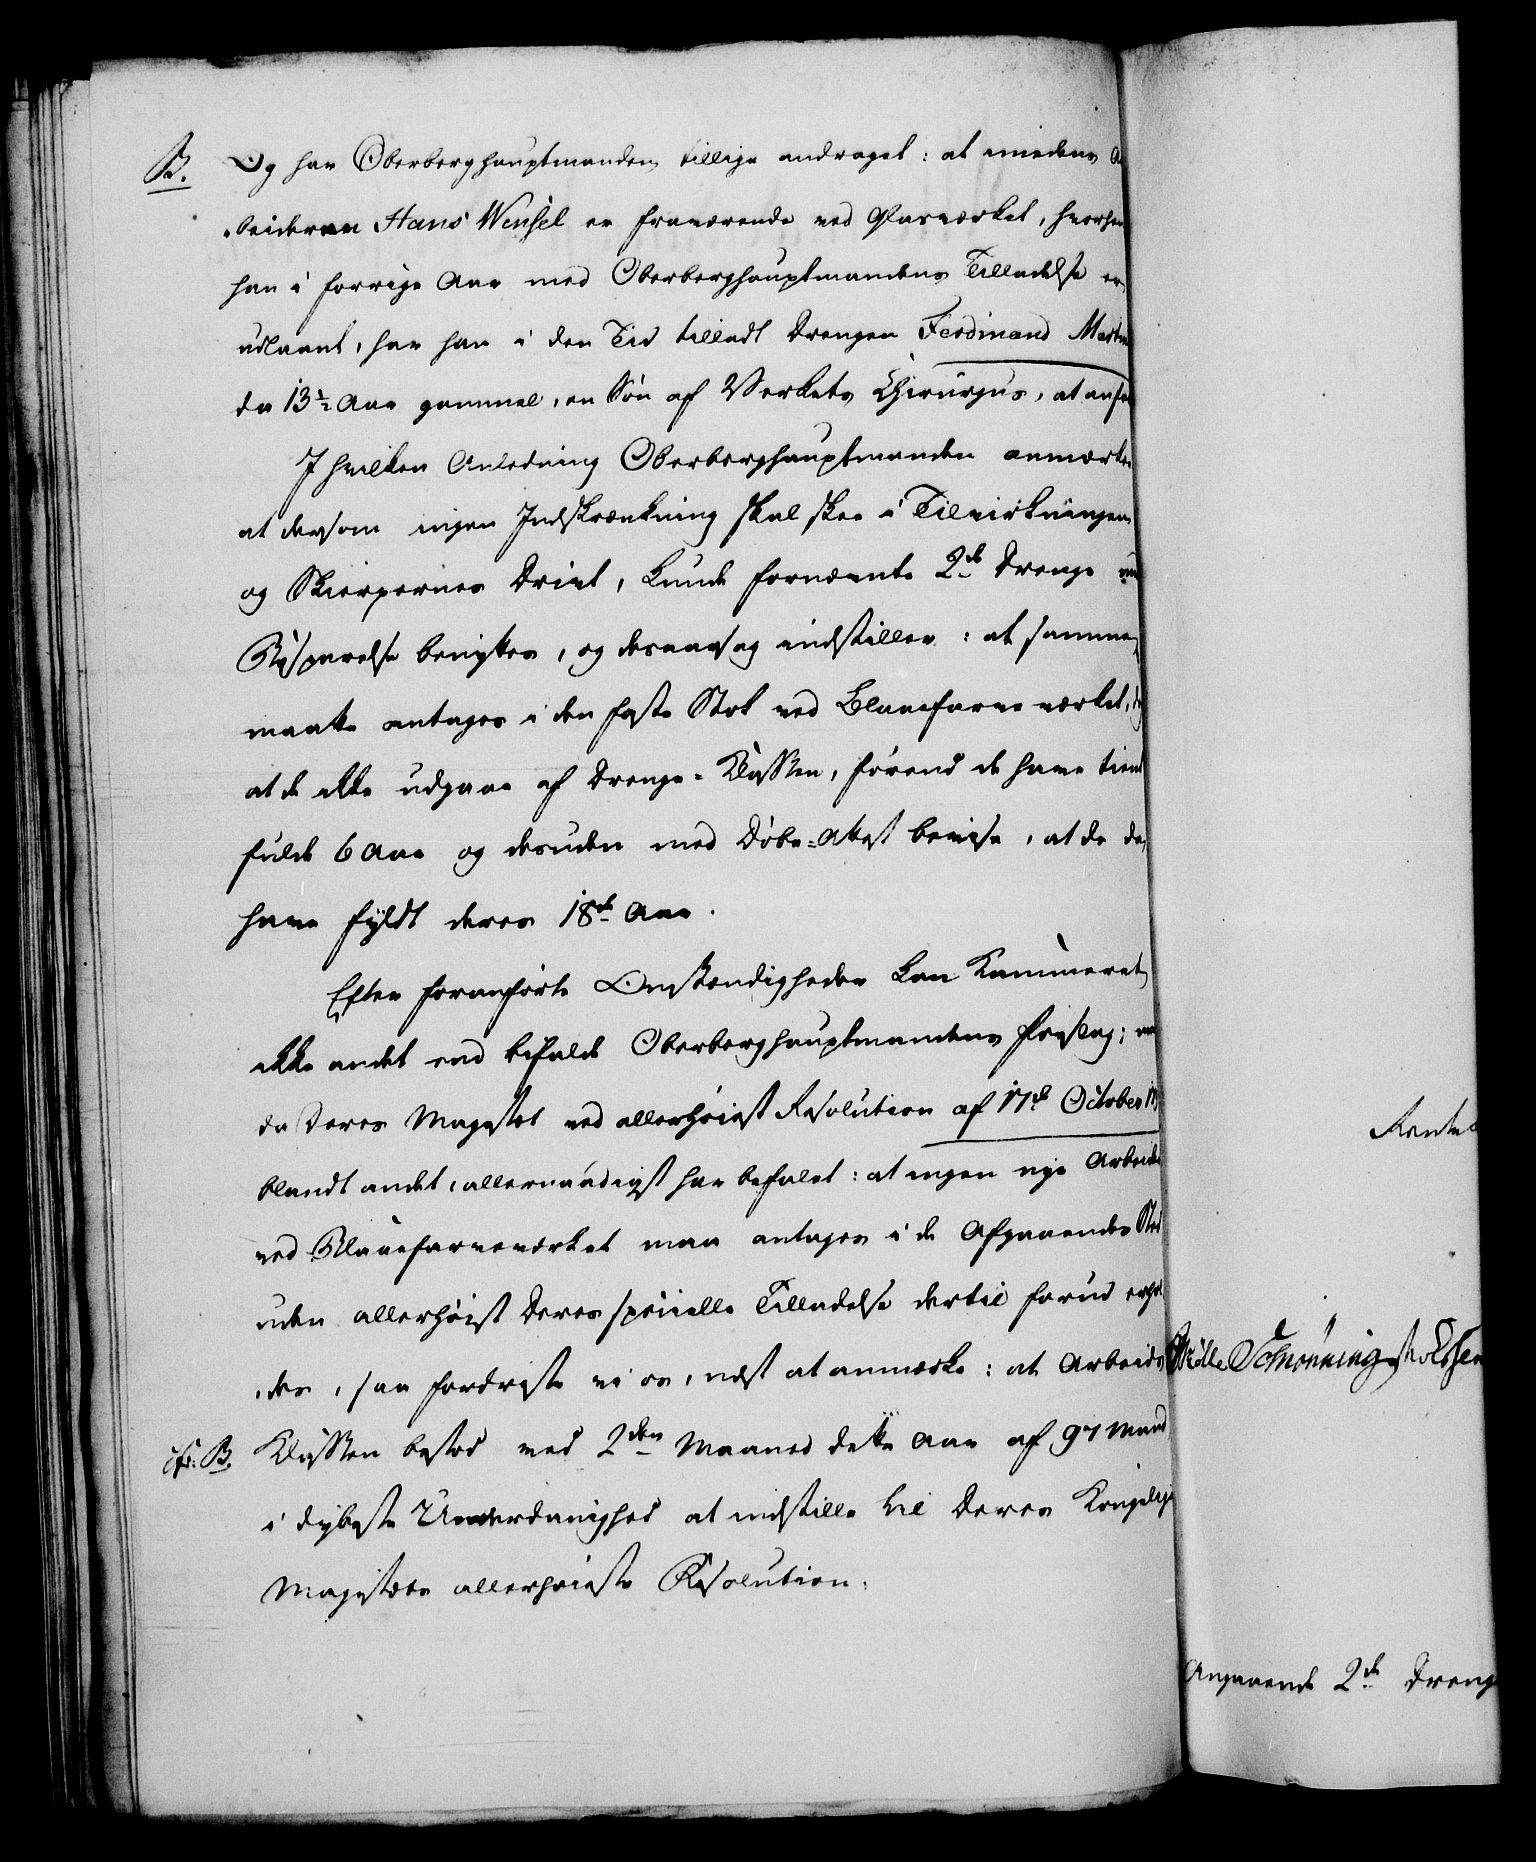 B. Og har Oberberghauptmanden tillige andraget: at imedens A
beideren Hans Wensel er fraværende ved Glasværket, hvorhen
han i forrige Aar med Oberberghauptmandens Tilladelse er
udlaant, har han i den Tid tilladt Drengen Ferdinand Martin
da 13½ Aar gammel, en Søn af Verkets Chirurgus, at anfar
I hvilken Anledning Oberberghauptmanden anmærker
at dersom ingen Indskrænkning skal skee i Tilvirkningen
og Skierpernes Drivt, kunde fornævnte 2de Drenge med
Besparelse benyttes, og desaarsag indstiller: at samme
maatte antages i den faste Stok ved Blaafarveværket, og
at de ikke udgaae af Drenge-Klassen, førend de have tient
fulde 6 Aar og desuden med Døbe-Attest bevise, at de da
have fyldt deres 18de Aar.
Efter foranførte Omstændigheder kan Kammeret
ikke andet end bifalde Oberberghauptmandens Forslag; men
da Deres Majestet ved allerhøiest Resolution af 17de October 17
blandt andet, allernaadigst har befalet: at ingen nye Arbeide
ved Blaafarveværket maa antages i de Afgaaendes Sted
uden allerhøist Deres specielle Tilladelse dertil forud erhol
des, saa fordriste vi os, næst at anmærke: at Arbeids
cfr: B. Klassen bestod ved 2den Maaned dette Aar af 97 Mand
i dybeste Underdanighed at indstille til Deres Kongelige
Majestets allerhøieste Resolution.
Rente
Mølle Schrønning Stoltzen
Angaaende 2de Dreng